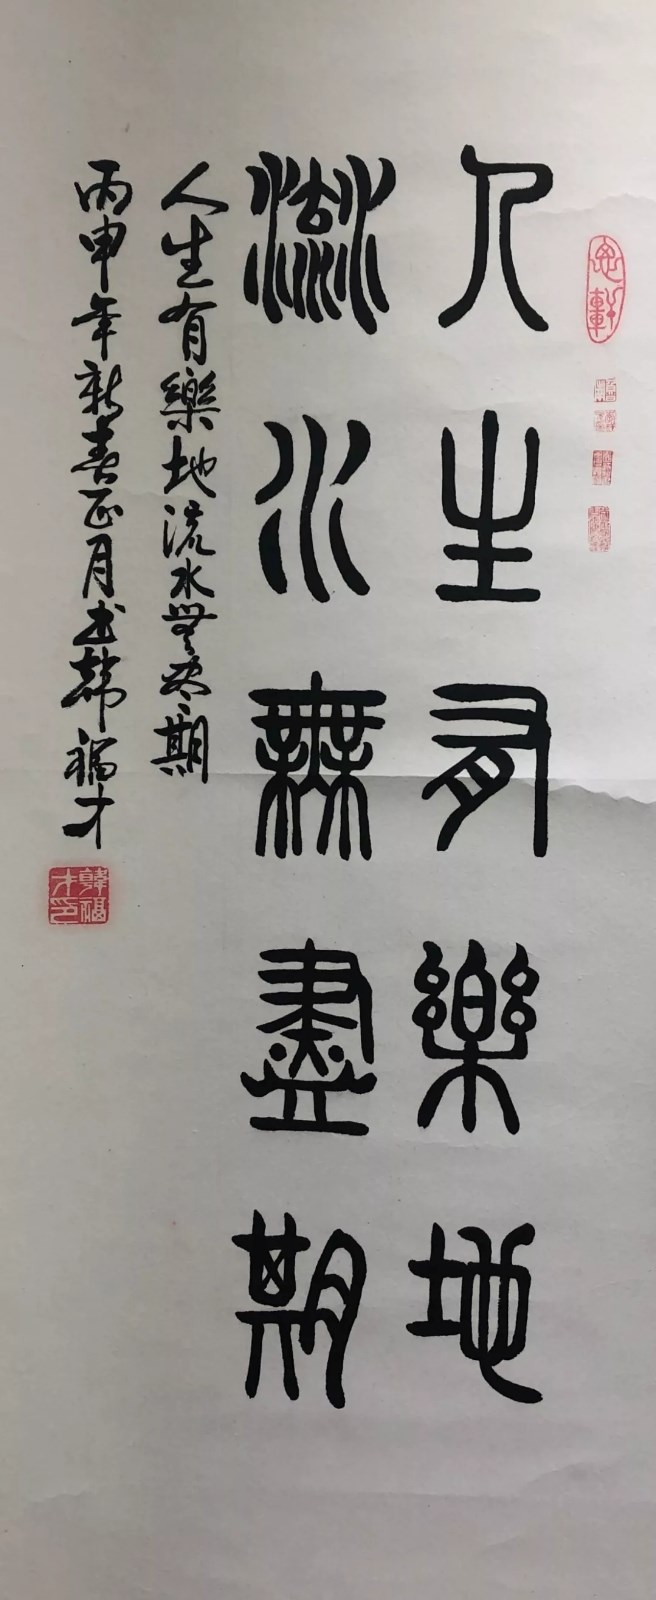 人生有樂地
流水無盡期
人生有樂地流水無盡期
丙申年新春正月书韩福才
韓福才印